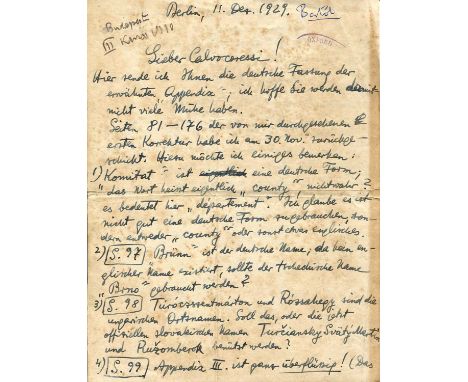 Berlin, 11. Dez. 1929.
Bartók
Budapest
III
OXFORD
Lieber Calvocoressi!
Hier sende ich Ihnen die deutsche Fassung der
erwähnten „Appendix“; ich hoffe Sie werden damit
nicht viele Mühe haben.
Seiten 81–176 der von mir durchgesehenen
ersten Korrektur habe ich am 30. Nov. zurückge-
schickt. Hiezu möchte ich einiges bemerken:
1) „Komitat“ ist eigentlich eine deutsche Form;
„das Wort heisst eigentlich „county“ nichtwahr?
es bedeutet hier „departement“. Ich glaube es ist
nicht gut eine deutsche Form zugebrauchen, son-
dern entweder „county“ oder sonst etwas englisches.
2) S. 97 „Brünn“ ist der deutsche Name, da kein en-
glischer Name existiert, sollte der tschechische Name
„Brno“ gebraucht werden?
3) S. 98 Túrócszentmárton und Rózsahegy sind die
ungarischen Ortsnamen. Soll das, oder die jetzt
offiziellen slovakischen Namen Turčiansky Svätý Martin
und Ružomberok benützt werden?
4) S. 99 Appendix III. ist ganz überflüssig! (Das